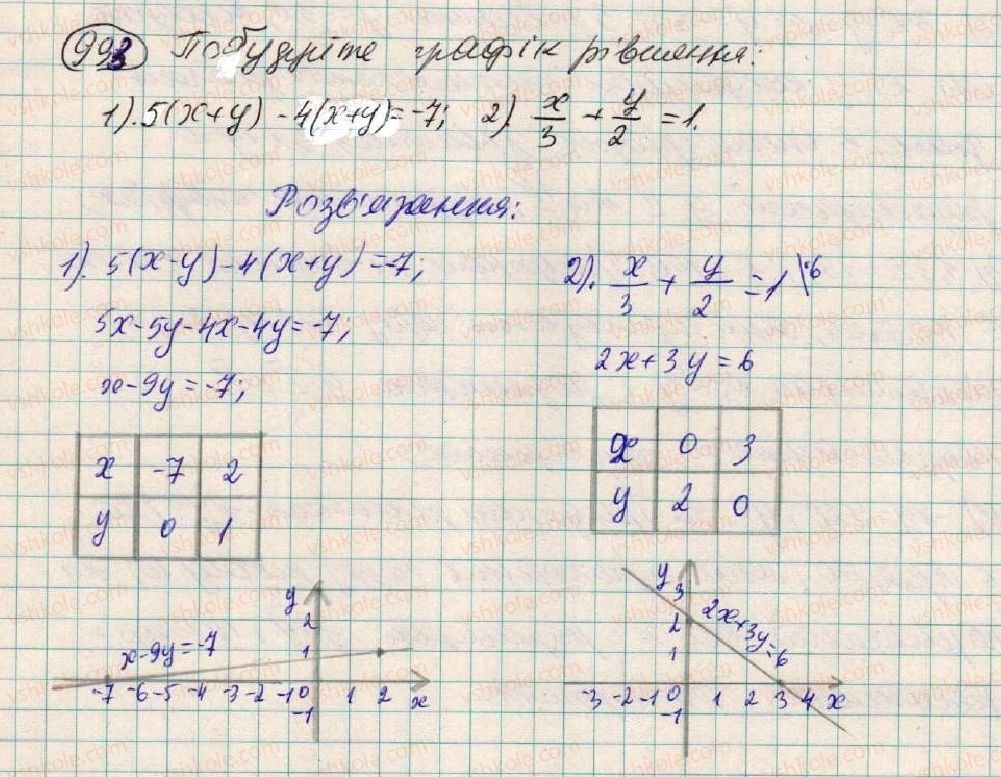 993 Побудуйте графік рівняння:
1). 5(x+y) - 4(x+y) = -7; 2). x/3 + y/2 = 1.
Розв'язання:
1). 5(x-y) - 4(x+y) = -7;
5x-5y-4x-4y=-7;
x-9y=-7;
x -7 2
y 0 1
2). x/3 + y/2 = 1 \·6
2x+3y=6
x 0 3
y 2 0
y
2
x-9y=-7
1
-7 -6 -5 -4 -3 -2 -1 0 1 2 x
-1
y
3
2
2x+3y=6
1
-3 -2 -1 0 1 2 3 4 x
-1
vshkole.com